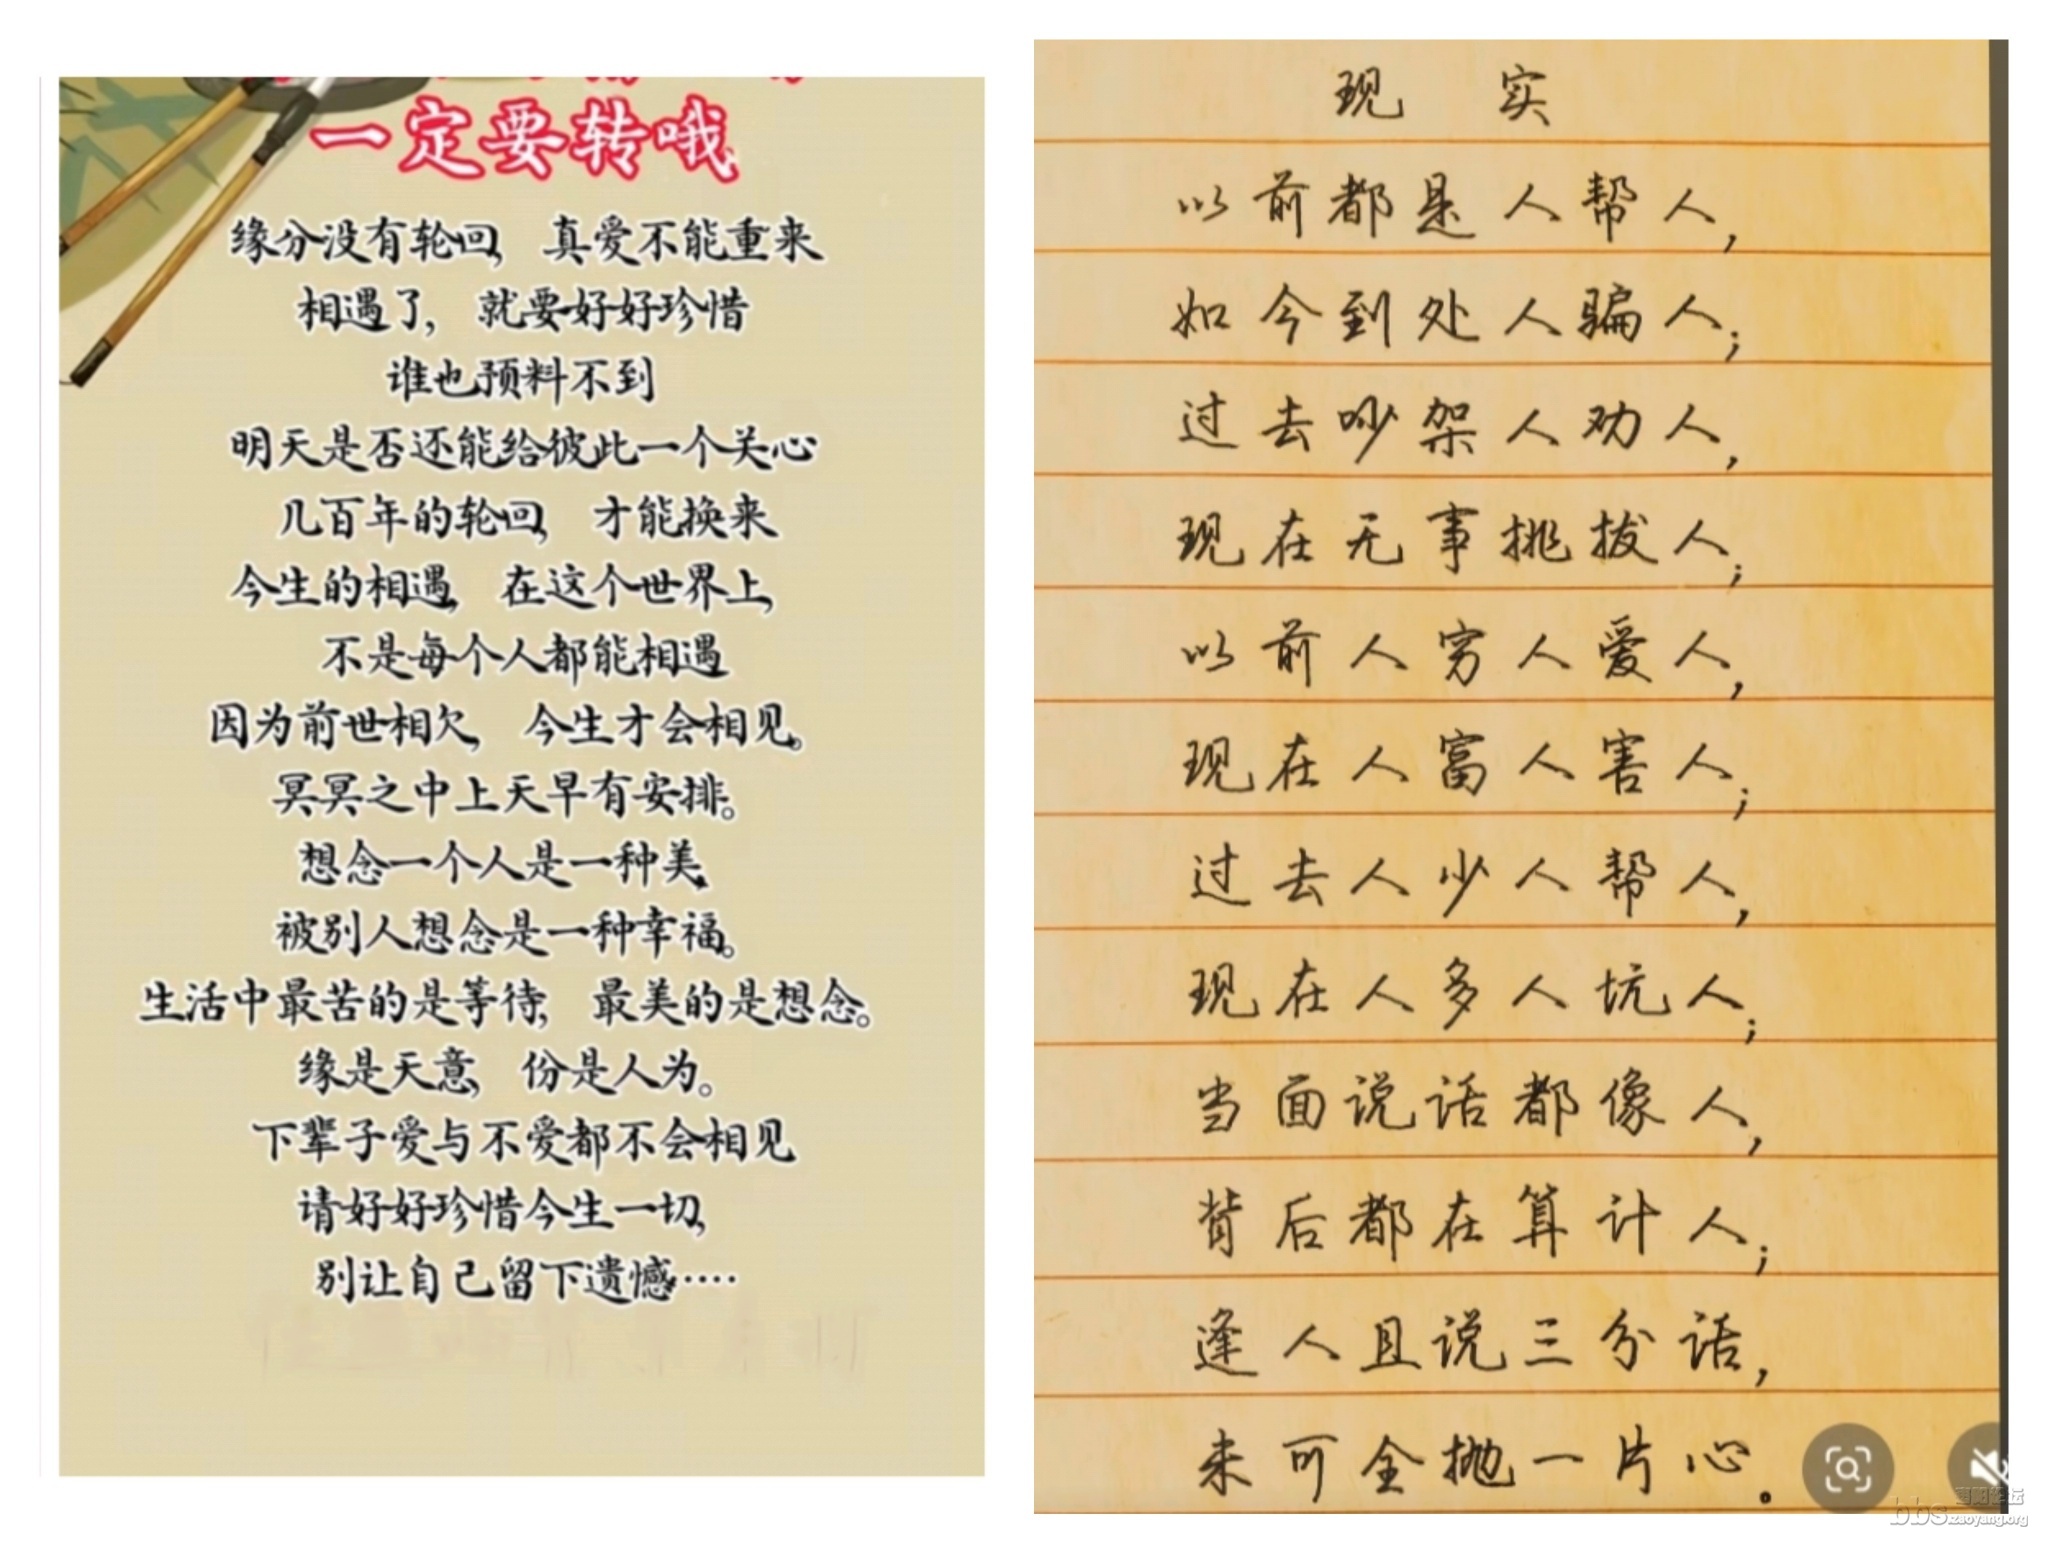 一定要转哦
缘分没有轮回, 真爱不能重来
相遇了, 就要好好珍惜
谁也预料不到
明天是否还能给彼此一个关心
几百年的轮回, 才能换来
今生的相遇, 在这个世界上,
不是每个人都能相遇
因为前世相欠, 今生才会相见。
冥冥之中上天早有安排。
想念一个人是一种美,
被别人想念是一种幸福。
生活中最苦的是等待, 最美的是想念。
缘是天意, 份是人为。
下辈子爱与不爱都不会相见
请好好珍惜今生一切,
别让自己留下遗憾····
现 实
以前都是人帮人,
如今到处人骗人;
过去吵架人劝人,
现在无事挑拔人;
以前人穷人爱人,
现在人富人害人;
过去人少人帮人,
现在人多人坑人;
当面说话都像人,
背后都在算计人;
逢人且说三分话,
未可全抛一片心。
bbs.zaoyang.org